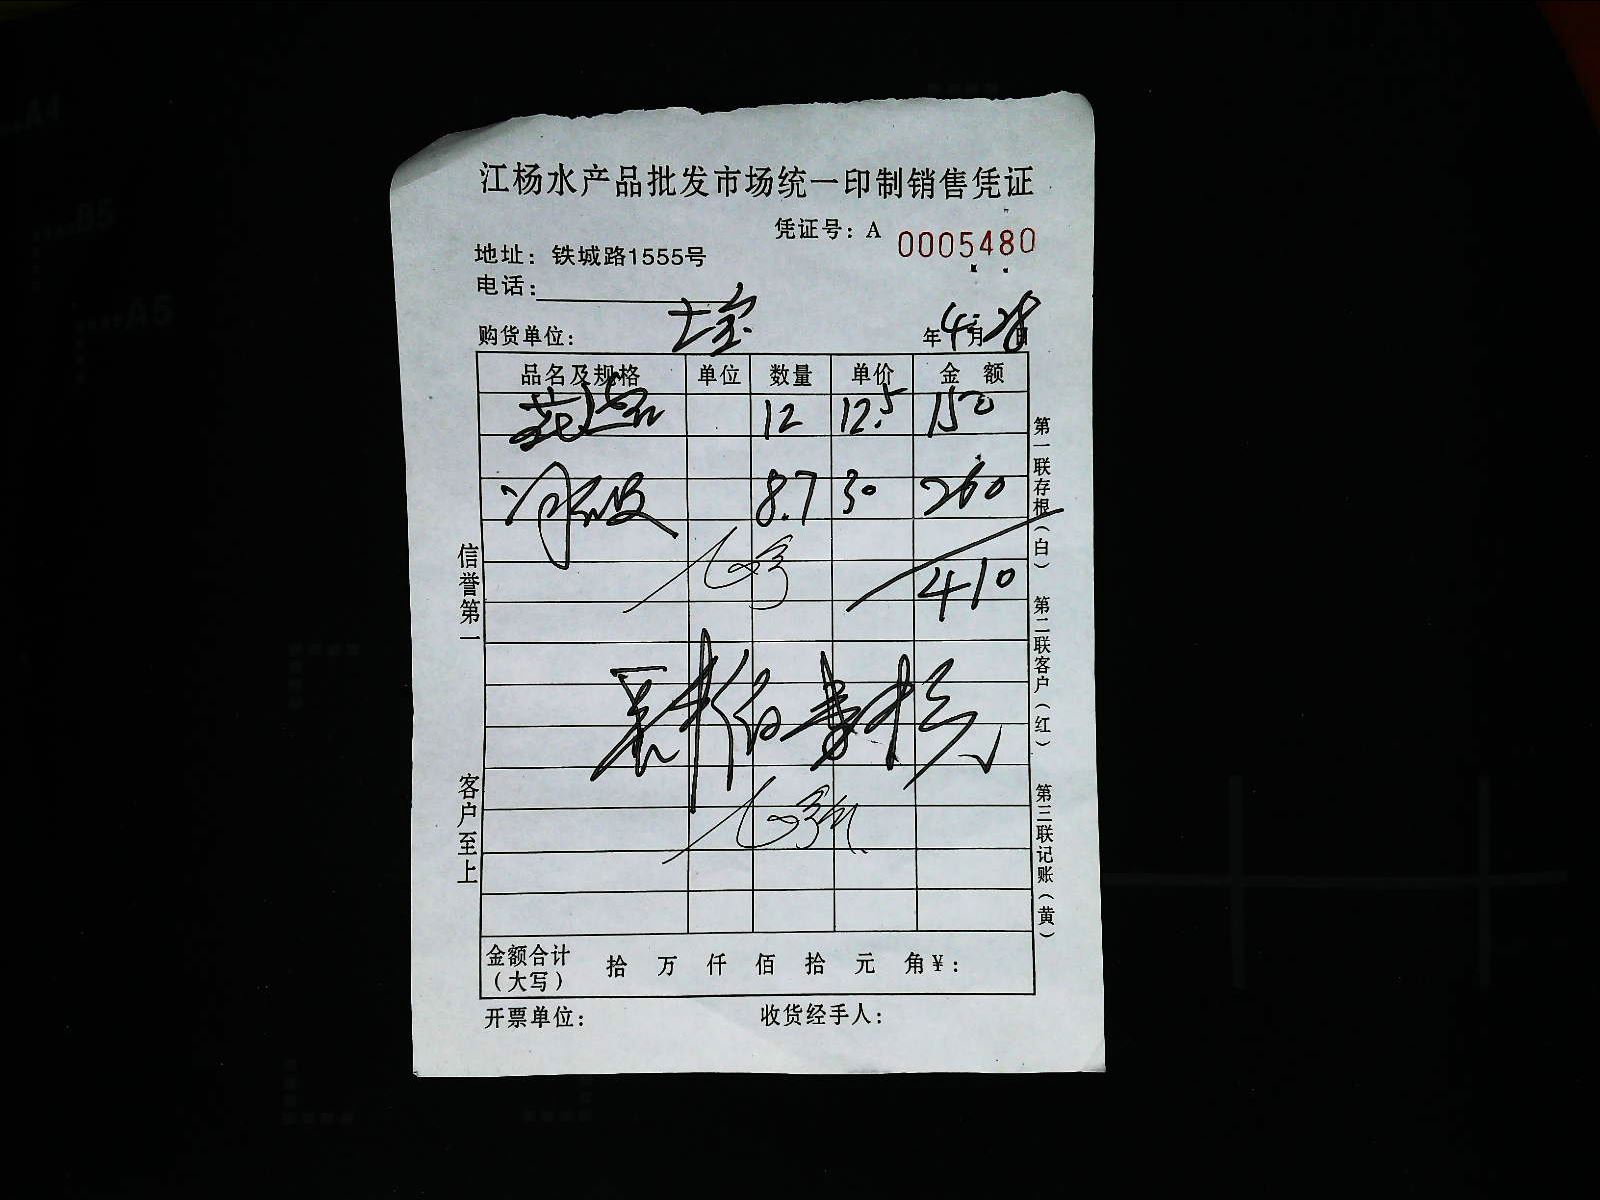 江杨水产品批发市场统一印制销售凭证
凭证号：A 0005480
地址：铁城路1555号
电话：
购货单位： 年4月28日
品名及规格 单位 数量 单价 金额
12 12.5 150
8.7 30 260
410
信誉第一 客户至上
第一联存根（白） 第二联客户（红） 第三联记账（黄）
金额合计 拾 万 仟 佰 拾 元 角¥：
（大写）
开票单位： 收货经手人：